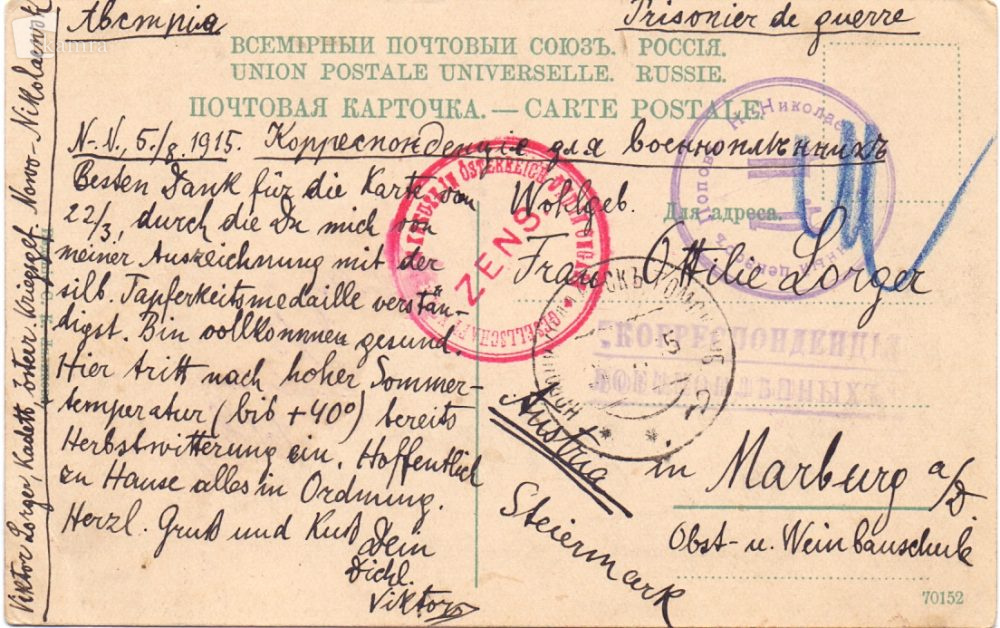 Австрія
Prisonier de guerre
ВСЕМІРНЫЙ ПОЧТОВЫЙ СОЮЗЪ. РОССІЯ.
UNION POSTALE UNIVERSELLE. RUSSIE.
ПОЧТОВАЯ КАРТОЧКА.—CARTE POSTALE.
N.-N., 5./8. 1915. Корреспонденціе для военноплѣнныхъ
Besten Dank für die Karte von
22/3, durch die Du mich von
meiner Auszeichnung mit der
silb. Tapferkeitsmedaille verstän-
digst. Bin vollkommen gesund.
Hier tritt nach hoher Sommer-
temperatur (bis +40°) bereits
Herbstwitterung ein. Hoffentlich
zu Hause alles in Ordnung.
Herzl. Gruß und Kuß
Dein
Dichl.
Viktor
Viktor Lorger, Kadett, österr. Kriegsgef. Novo-Nikolaewsk
Wohlgeb.
Для адреса.
Frau Ottilie Lorger
in Marburg a/D.
Obst- u. Weinbauschule
Austria
Steiermark
ZENS
КОРРЕСПОНДЕНЦІЯ
ВОЕННОПЛѢННЫХЪ
70152
kamra